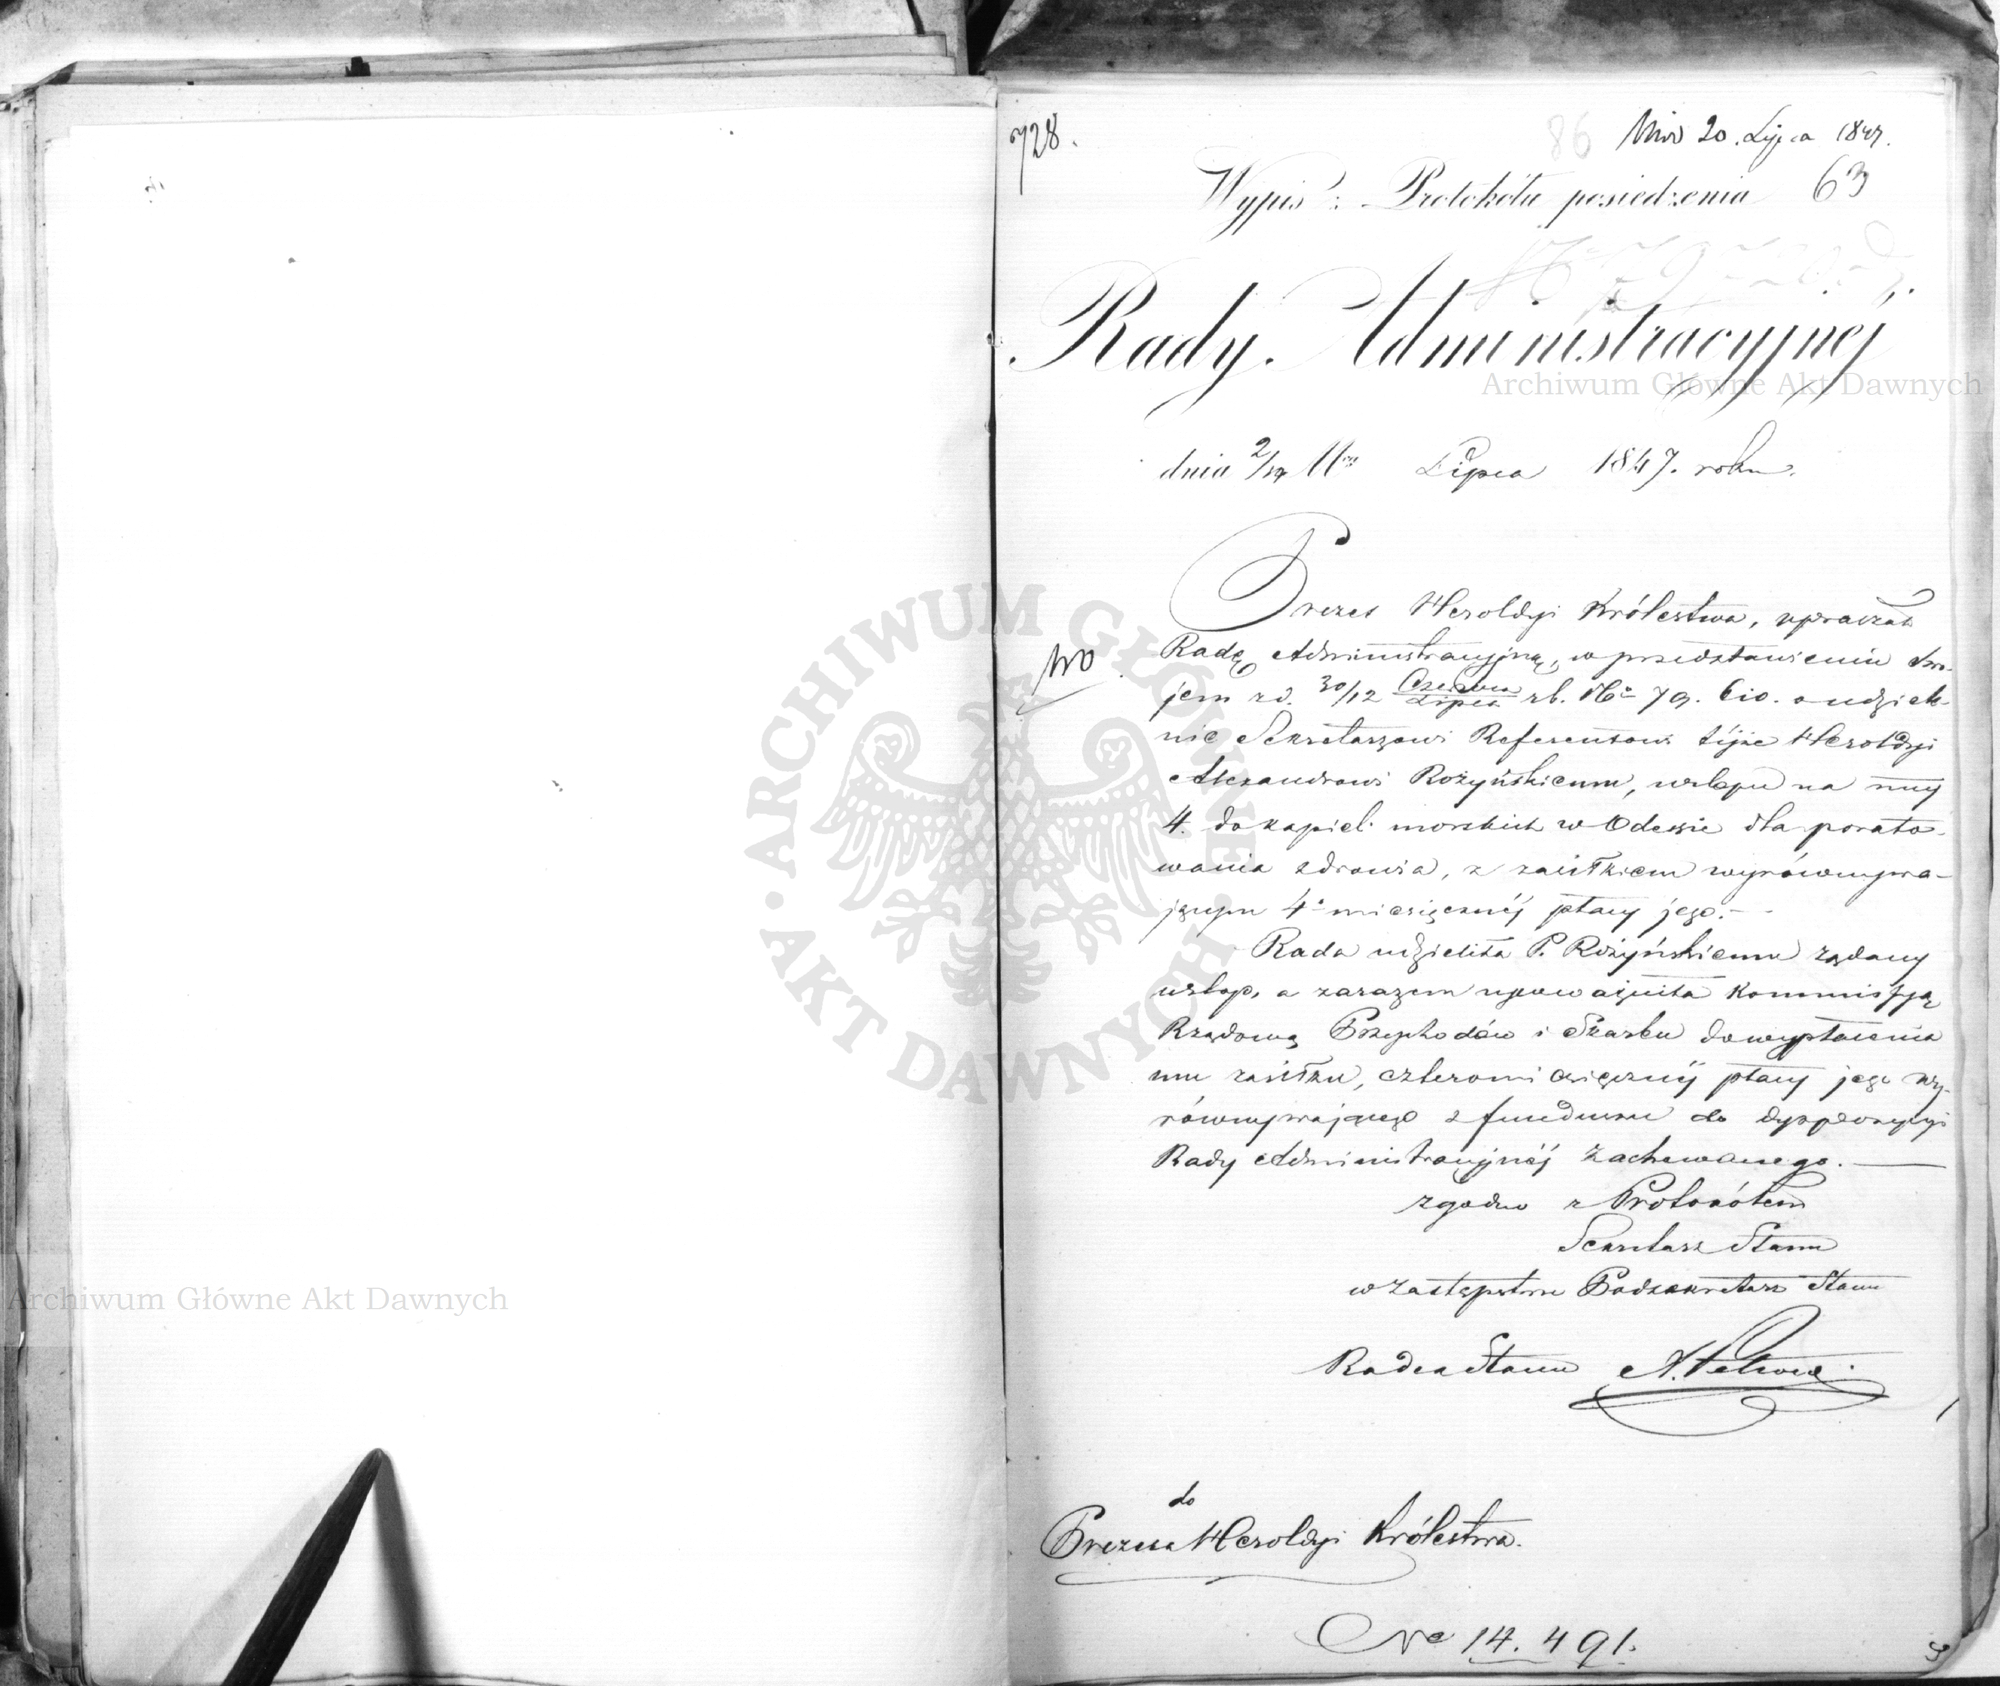 728.
86
20. Lipca 1847.
Wypis z Protokółu posiedzenia 63
Rady Administracyjnéj
dnia 2/14 Lipca 1847. roku.
Prezes Heroldyi Królestwa, upraszał
Radę Administracyjną, w przedstawieniu swo-
jem z d. 30/12 Czerwca/Lipca r.b. No 79. 610. o udziele-
nie Sekretarzowi Referentowi téjże Heroldyi
Alexandrowi Rożyńskiemu, urlopu na mcy
4. do kąpieli morskich w Odessie dla porato-
wania zdrowia, z zasiłkiem wyrównywa-
jącym 4o miesięcznéj płacy jego. —
Rada udzieliła P. Rożyńskiemu żądany
urlop, a zarazem upoważniła Kommissyją
Rządową Przychodów i Skarbu do wypłacenia
mu zasiłku, czteromiesięcznéj płacy jego wy-
równywającego z funduszu do dyspozycyi
Rady Administracyjnéj zachowanego. —
zgodno z Protokółem
Sekretarz Stanu
w zastępstwie Podsekretarz Stanu
Radca Stanu
do
Prezesa Heroldyi Królestwa.
No 14.491.
3
ARCHIWUM GŁÓWNE • AKT DAWNYCH •
Archiwum Główne Akt Dawnych
Archiwum Główne Akt Dawnych